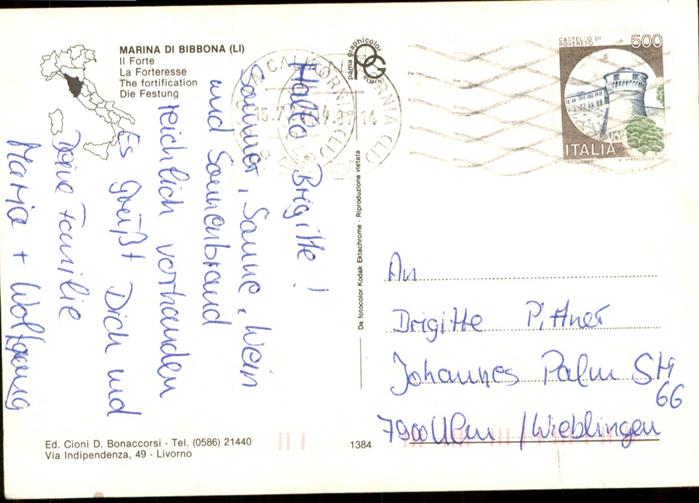 MARINA DI BIBBONA (LI)
Il Forte
La Forteresse
The fortification
Die Festung
Hallo Brigitte!
Sommer, Sonne, Wein
und Sonnenbrand
reichlich vorhanden
Es grüßt Dich und
Deine Familie
Maria + Wolfgang
Ed. Cioni D. Bonaccorsi - Tel. (0586) 21440
Via Indipendenza, 49 - Livorno
1384
Da fotocolor Kodak Ektachrome - Riproduzione vietata
CASTELLO DI
ROVERETO
500
ITALIA
An
Brigitte Pittner
Johannes Palm Str
66
7900 Ulm / Wieblingen